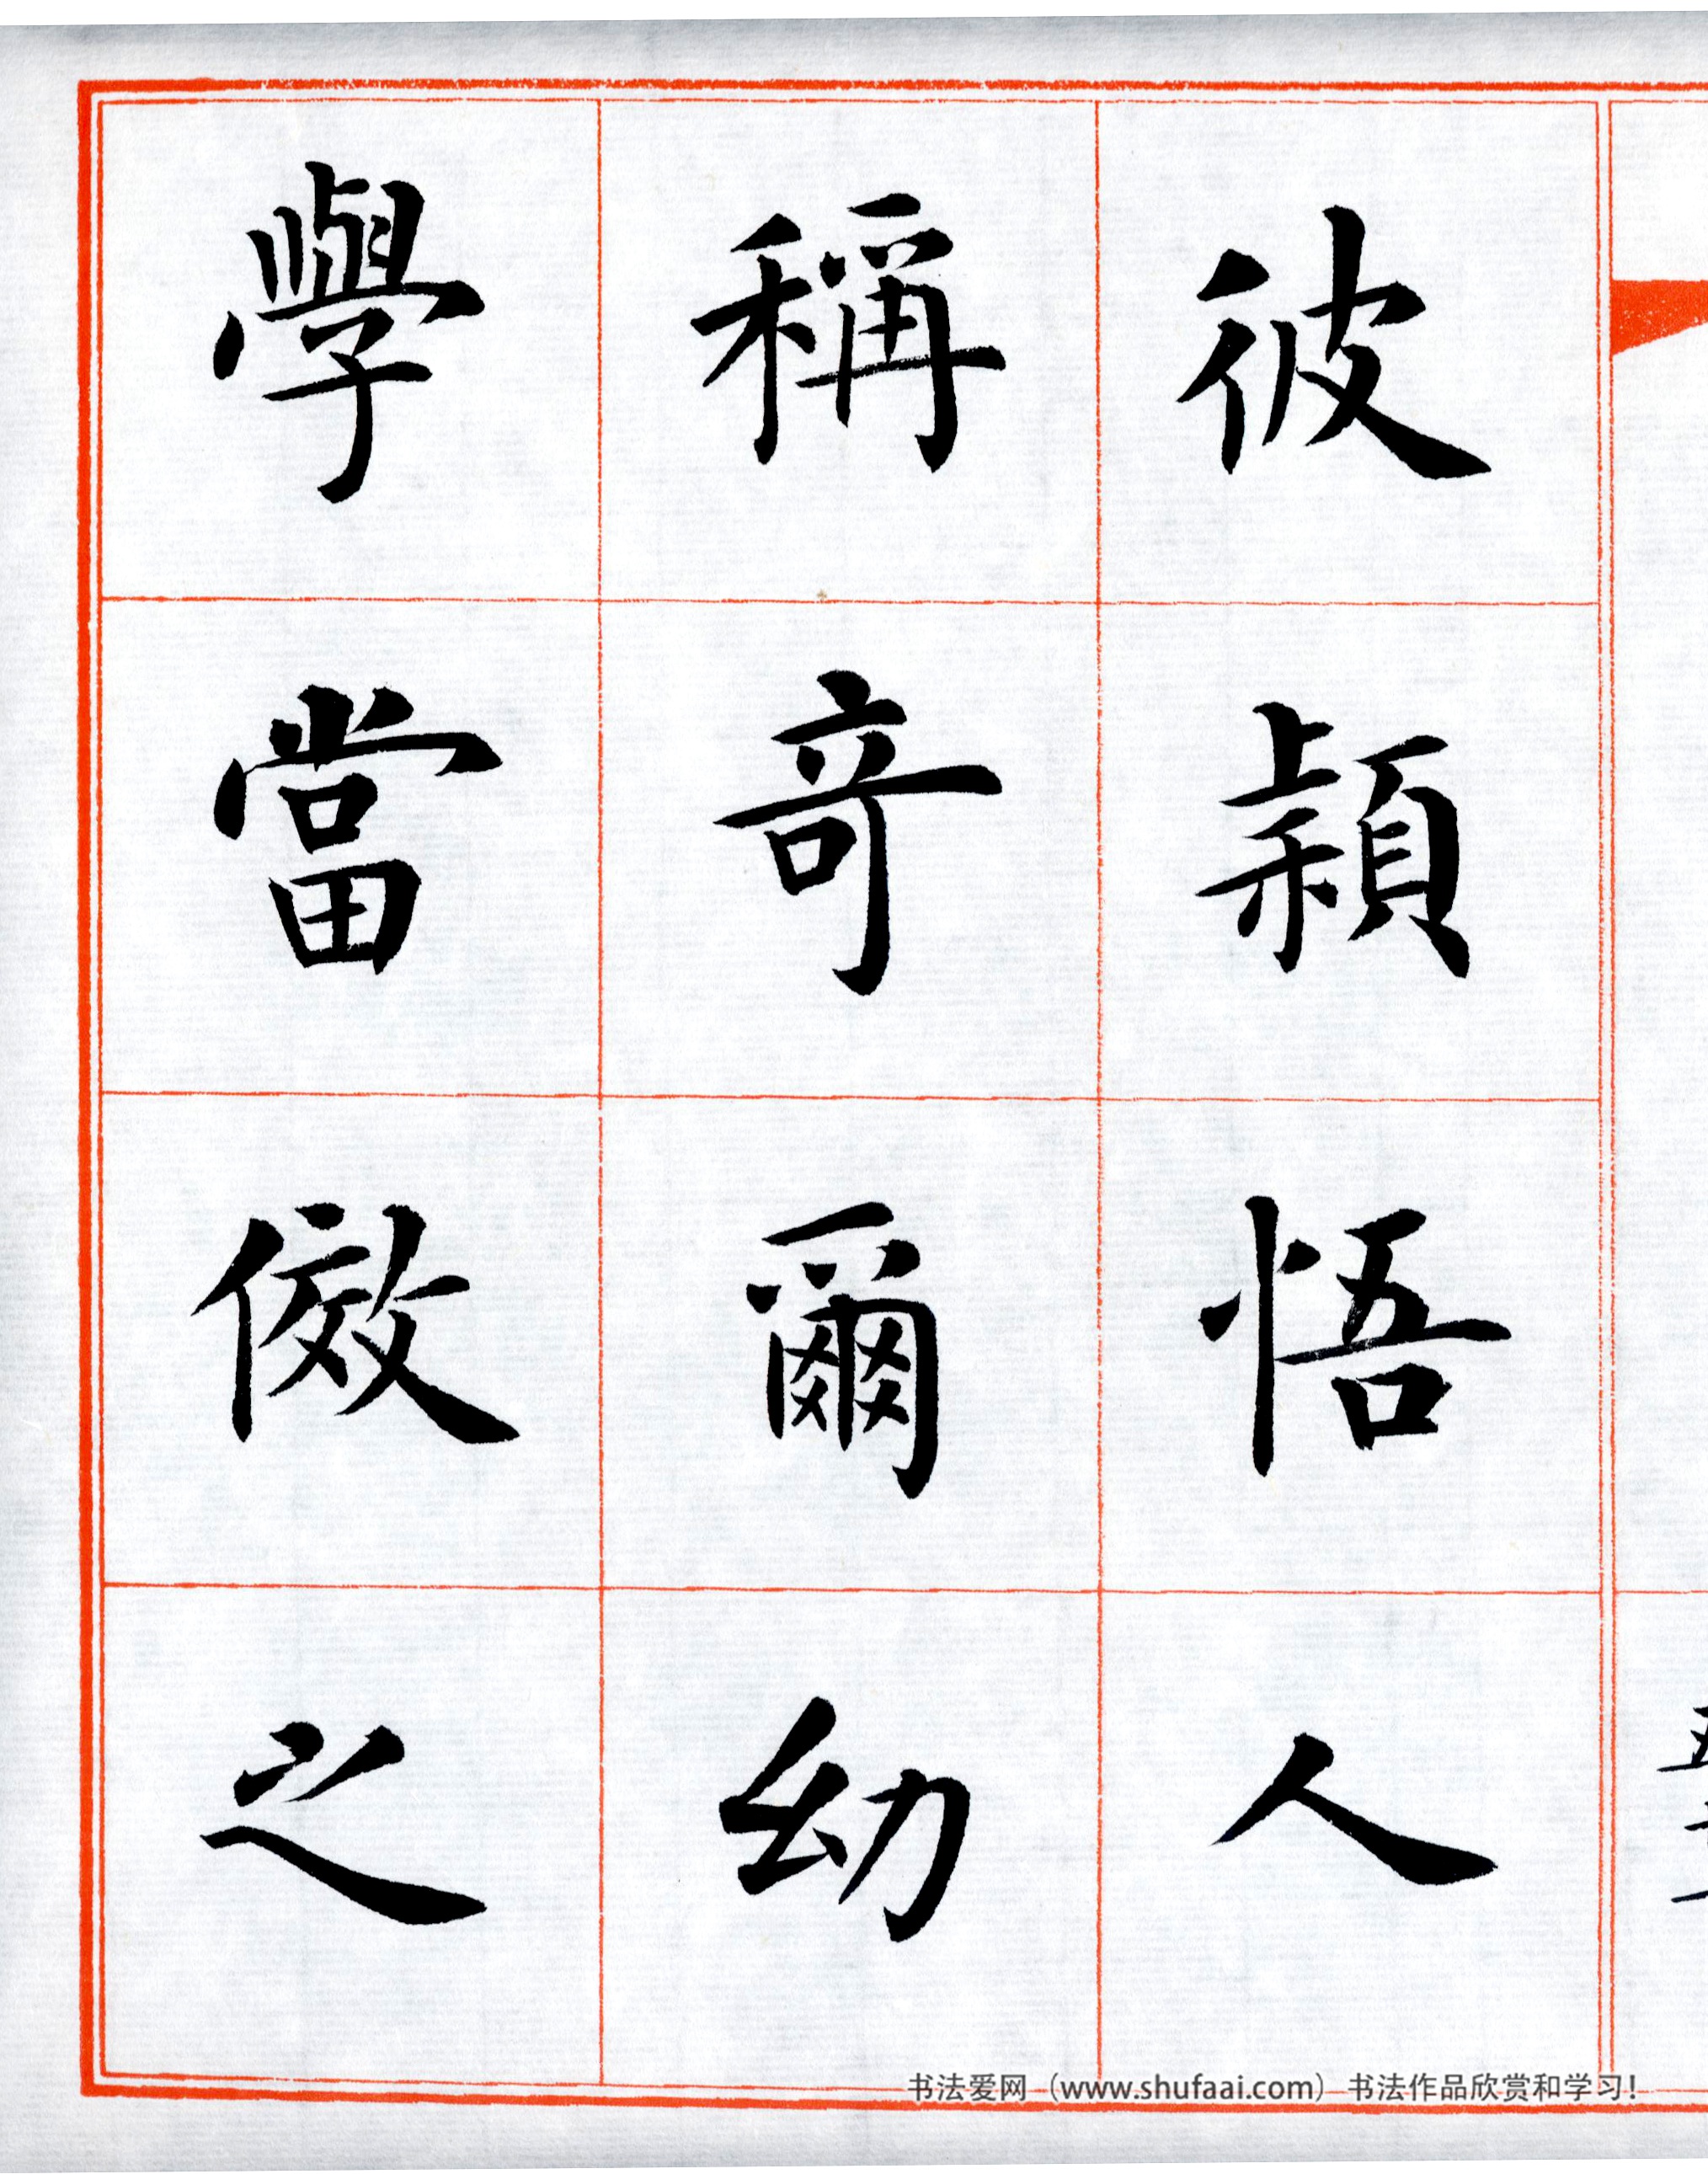 彼穎悟人
稱奇爾幼
學當傚之
书法爱网（www.shufaai.com）书法作品欣赏和学习！